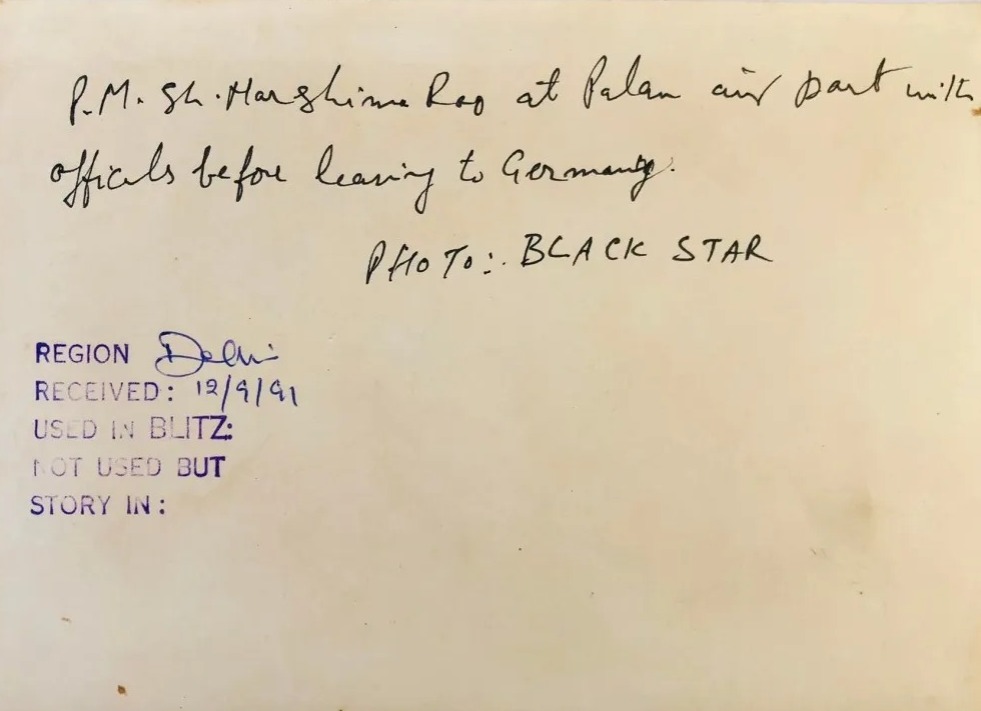 P.M. Sh. Harshima Rao at Palam air port with
officals before leaving to Germany.
PHOTO:. BLACK STAR
REGION Delhi
RECEIVED: 12/9/91
USED IN BLITZ:
NOT USED BUT
STORY IN: